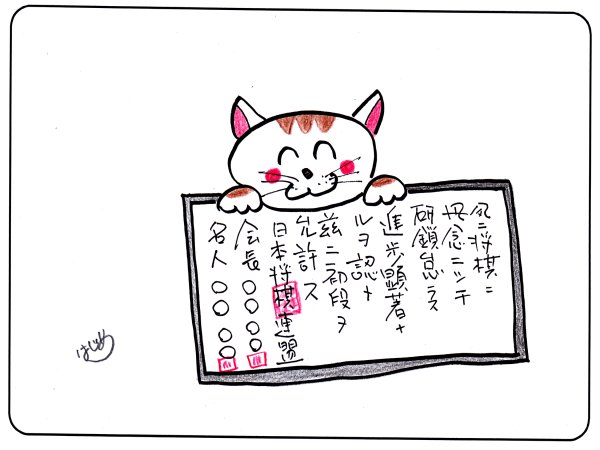 夙ニ将棋ニ
丹念ニシテ
研鎖怠ラス
進歩ノ顕著ナ
ルヲ認メ
茲ニ初段ヲ
允許ス
日本将棋連盟
会長〇〇〇〇
名人〇〇〇〇
はじめ